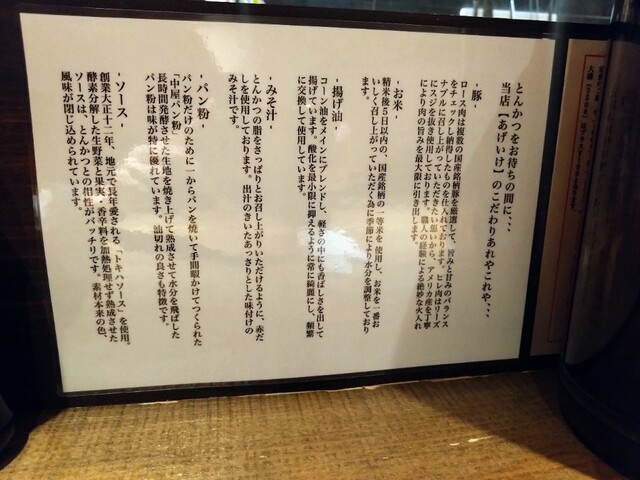 とんかつをお待ちの間に、、、
当店【あげいけ】のこだわりあれやこれや、、、
- 豚 -
ロース肉は複数の国産銘柄豚を厳選して、旨みと甘みのバランス
をチェックし納得したものを仕入れております。ヒレ肉はリーズ
ナブルに召し上がっていただきたい思いから、アメリカ産を丁寧
にスジを抜き使用しております。職人の経験による絶妙な火入れ
により肉の旨みを最大限に引き出します。
- お米 -
精米後５日以内の、国産銘柄の一等米を使用し、お米を一番お
いしく召し上がっていただく為に季節により水分を調整しており
ます。
- 揚げ油 -
コーン油をメインにブレンドし、軽さの中にも香ばしさを出して
揚げています。酸化を最小限に抑えるように常に綺麗にし、頻繁
に交換して使用しています。
- みそ汁 -
とんかつの脂をさっぱりとお召し上がりいただけるように、赤だ
しを使用しております。出汁のきいたあっさりとした味付けの
みそ汁です。
- パン粉 -
パン粉だけのために一からパンを焼いて手間暇かけてつくられた
「中屋パン粉」。
長時間発酵させた生地を焼き上げて熟成させて水分を飛ばした
パン粉は味が特に優れています。油切れの良さも特徴です。
- ソース -
創業大正十二年、地元で長年愛される「トキハソース」を使用。
酵素分解した生野菜と果実・香辛料を加熱処理せず熟成させた
ソースは、とんかつとの相性がバッチリです。素材本来の色、
風味が閉じ込められています。